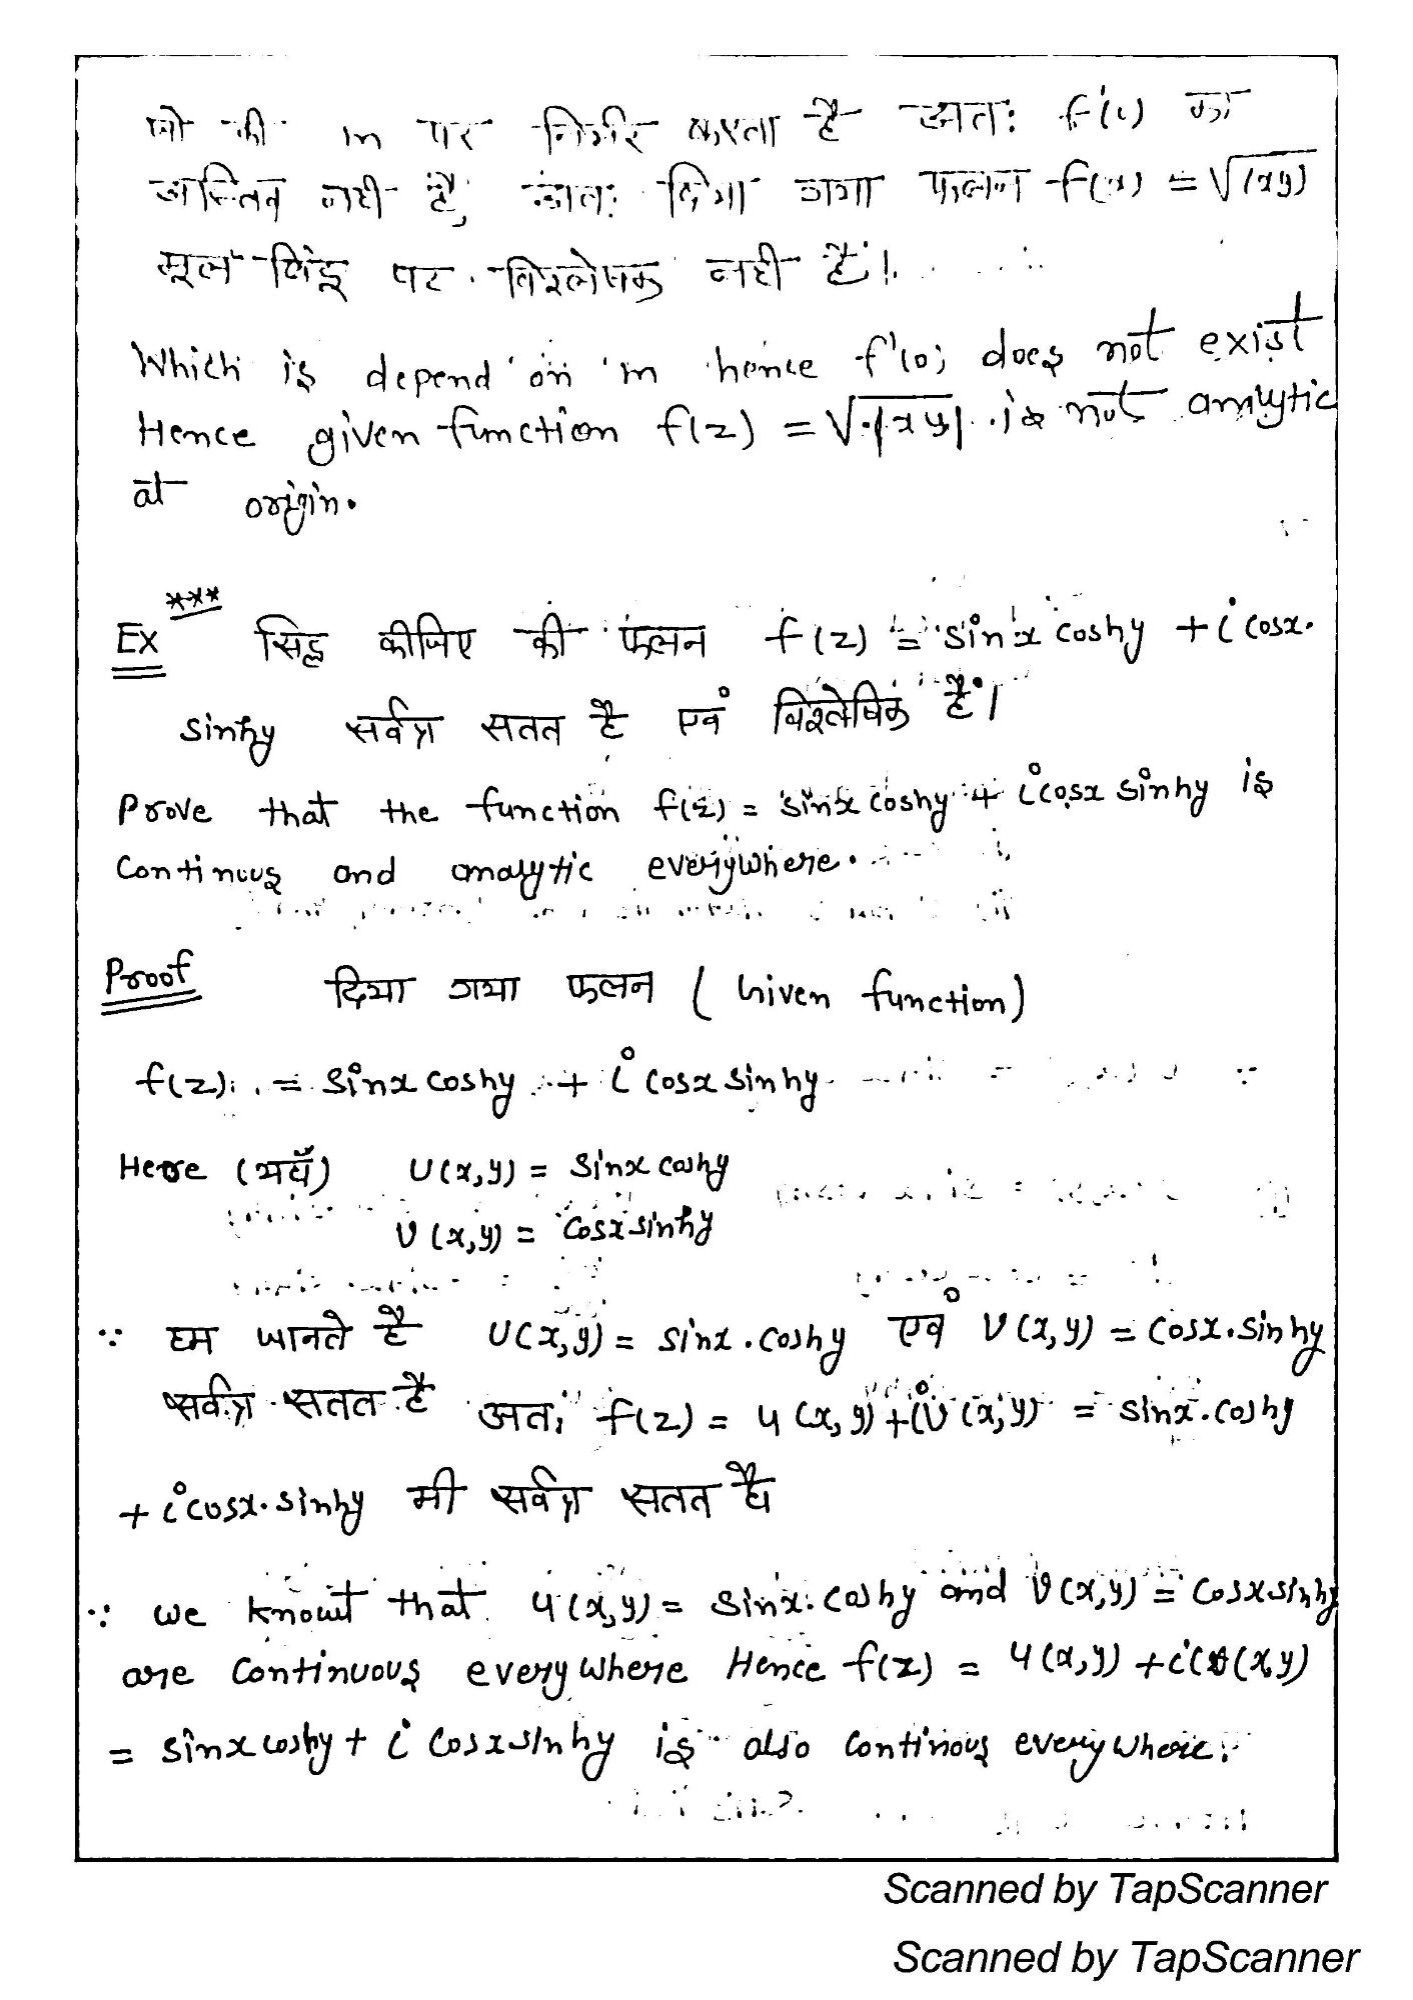 जो की m पर निर्भर करता है अतः f'(0) का
अस्तित्व नही है, अतः दिया गया फलन f(z) = √|xy|
मूल बिंदू पर विश्लेषिक नही है।
Which is depend on m hence f'(0) does not exist
Hence given function f(z) = √|xy| is not analytic
at origin.
Ex *** सिद्ध कीजिए की फलन f(z) = sinx coshy + i cosx.
sinhy सर्वत्र सतत है एवं विश्लेषिक है।
Prove that the function f(z) = sinx coshy + i cosx sinhy is
Continuous and analytic everywhere.
Proof दिया गया फलन ( Given function)
f(z) = sinx coshy + i cosx sinhy
Here (यहाँ) U(x,y) = sinx coshy
V(x,y) = cosx sinhy
∵ हम जानते है U(x,y) = sinx . coshy एवं V(x,y) = cosx . sinhy
सर्वत्र सतत है अतः f(z) = u(x,y) + iv(x,y) = sinx . coshy
+ i cosx . sinhy भी सर्वत्र सतत है
∵ we know that u(x,y) = sinx . coshy and V(x,y) = cosx sinhy
are Continuous everywhere Hence f(z) = u(x,y) + i(v(x,y)
= sinx coshy + i cosx sinhy is also continous everywhere.
Scanned by TapScanner
Scanned by TapScanner